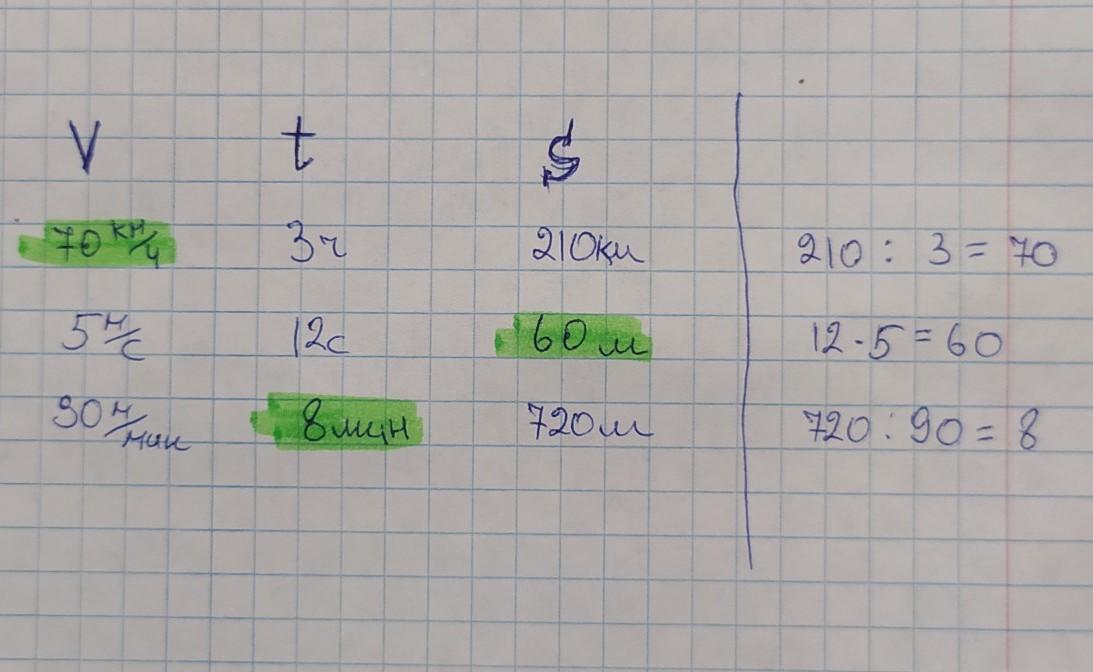 V t S
70 км/ч 3ч 210км 210 : 3 = 70
5 м/с 12с 60 м 12 · 5 = 60
90 м/мин 8 мин 720м 720 : 90 = 8